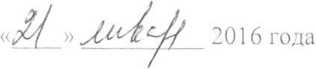 «21» января 2016 года